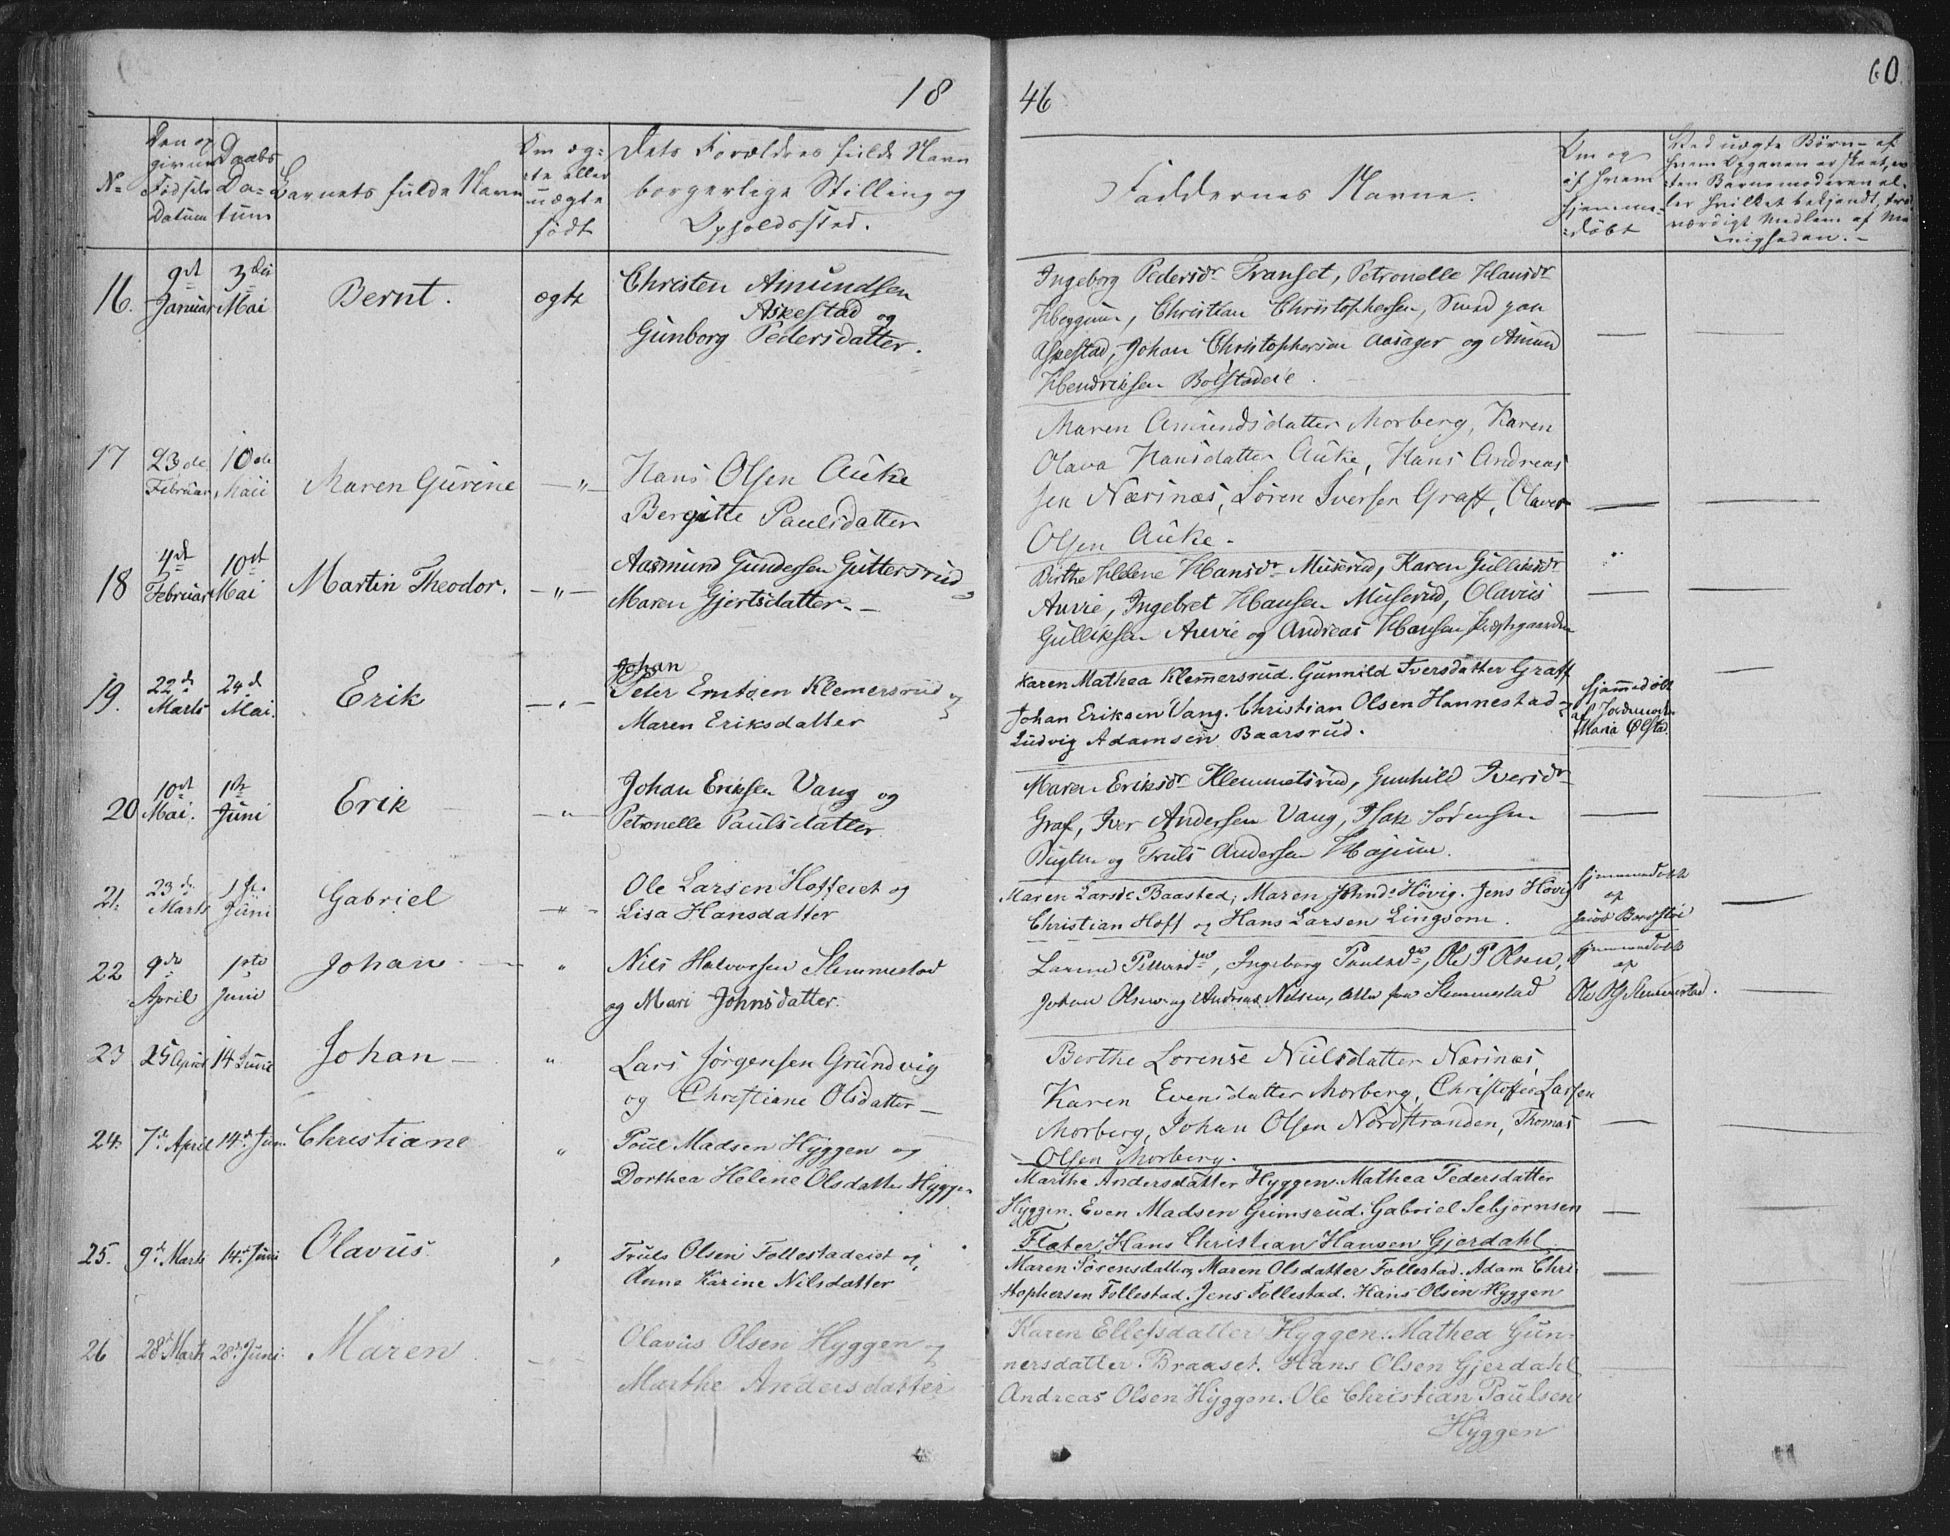 18
46
60
No
Den op
givne
Fødsels
Datum
Daabs
Da-
tum
Barnets fulde Navn
Om æg-
te eller
uægte
født
Dets Forældres fulde Navn
borgerlige Stilling og
Opholdssted.
Faddernes Navne.
Om og
af hvem
hjemme-
døbt
Ved uægte Børn - af
hvem Opgaven er skeet, en
ten Barnemoderen el-
ler hvilket bekjendt, tro
værdigt Medlem af Me
nigheden.-
16.
9de
Januar
3die
Mai
Bernt.
ægte
Christen Amundsen
Askestad og
Gunborg Pedersdatter.
Ingeborg Pedersdr Transet, Petronelle Hansdr
Heggum, Christian Christophersen, Smed paa
Askestad, Johan Christophersen Aasager og Amund
Hendriksen Bolstadeie.
17
23de
Februar
10de
Maii
Maren Gurine
—"—
Hans Olsen Auke
Bergitte Paulsdatter
Maren Amundsdatter Morberg, Karen
Olava Hansdatter Auke, Hans Andreas
sen Nærsnæs, Søren Iversen Graff, Olaves
Olsen Auke.
18
4de
Februar
10de
Mai
Martin Theodor.
—"—
Aasmund Gundersen Guttersrud
Maren Gjertsdatter.
Birthe Helene Hansdr Muserud, Karen Gulliksdr
Auvie, Ingebret Hansen Muserud, Olavus
Gulliksen Auvie og Andreas Hansen Præstgaarden
19.
22de
Marts
24d
Mai.
Erik
—"—
Johan
Peter Erntsen Klemersrud
Maren Eriksdatter
Karen Mathea Klemmersrud. Gunnild Iversdatter Graff
Johan Eriksen Vang. Christian Olsen Hannestad
Ludvig Adamsen Baarsrud.
hjemmedøbt
af Jordemoder
Maria Ølstad
20
10de
Mai.
1ste
Juni
Erik
—"—
Johan Eriksen Vang og
Petronelle Paulsdatter
Maren Eriksdr Klemmetsrud, Gunhild Iversdr
Graf, Iver Andersen Vang, Isak Sørensen
Bugten og Truls Andersen Hajum.
21.
23d.
Marts
1ste.
Juni
Gabriel
—"—
Ole Larsen Hoffeiet og
Lisa Hansdatter
Maren Larsdr Baasted; Maren Johnsdr Høvig. Jens Høvig
Christian Hoff og Hans Larsen Lingsom.
hjemmedøbt
af
22
9de
April
1ste
Juni
Johan
"
Nils Halvorsen Slemmestad
og Mari Johnsdatter.
Ingeborg Paulsdr, Ole P Olsen,
Johan Olsen og Andreas Nelsen, alle fra Slemmestad
hjemmedøbt
af
Ole Ols Slemmestad.
23
25 April
14 Juni
Johan
"
Lars Jørgensen Grundvig
og Christiane Olsdatter
Berthe Lorense Nielsdatter Nærsnæs,
Karen Evensdatter Morberg, Christoffer Larsen
Morberg, Johan Olsen Nordstranden, Thomas
Olsen Morberg.
24.
7de April
14de Juni
Christiane
"
Poul Madsen Hyggen og
Dorthea Helene Olsdatter Hyggen
Marthe Andersdatter Hyggen. Mathea Pedersdatter
Hyggen. Even Madsen Grimsrud. Gabriel Sebjornsen
Fløter. Hans Christian Hansen Gjerdahl.
25.
9de Marts
14de Juni
Olavus
"
Truls Olsen Follestadeiet og
Anne Karine Nilsdatter
Maren Sørensdatter, Maren Olsdatter Follestad. Adam Chri
stophersen Follestad. Jens Follestad. Hans Olsen Hyggen
26
28de Marts
28de Juni.
Maren
Olavus Olsen Hyggen og
Marthe Andersdatter
Karen Ellefsdatter Hyggen. Mathea Gun-
nersdatter. Braaset. Hans Olsen Gjerdahl
Andreas Olsen Hyggen. Ole Christian Poulsen
Hyggen